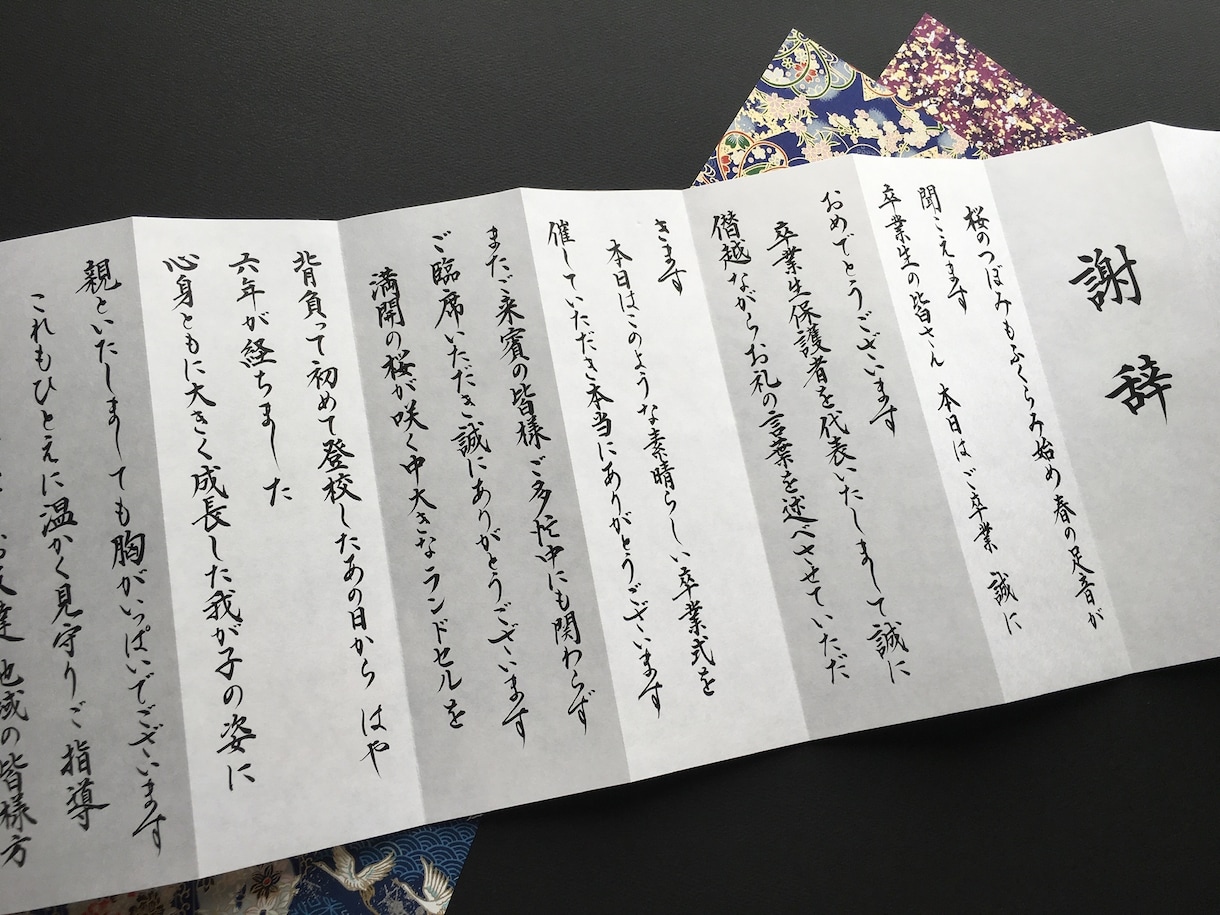 謝辞
桜のつぼみもふくらみ始め 春の足音が
聞こえます
卒業生の皆さん 本日はご卒業 誠に
おめでとうございます
卒業生保護者を代表いたしまして誠に
僭越ながらお礼の言葉を述べさせていただ
きます
本日はこのような素晴らしい卒業式を
催していただき本当にありがとうございます
またご来賓の皆様 ご多忙中にも関わらず
ご臨席いただき誠にありがとうございます
満開の桜が咲く中大きなランドセルを
背負って初めて登校したあの日から はや
六年が経ちました
心身ともに大きく成長した我が子の姿に
親といたしましても胸がいっぱいでございます
これもひとえに温かく見守りご指導
達 地域の皆様方